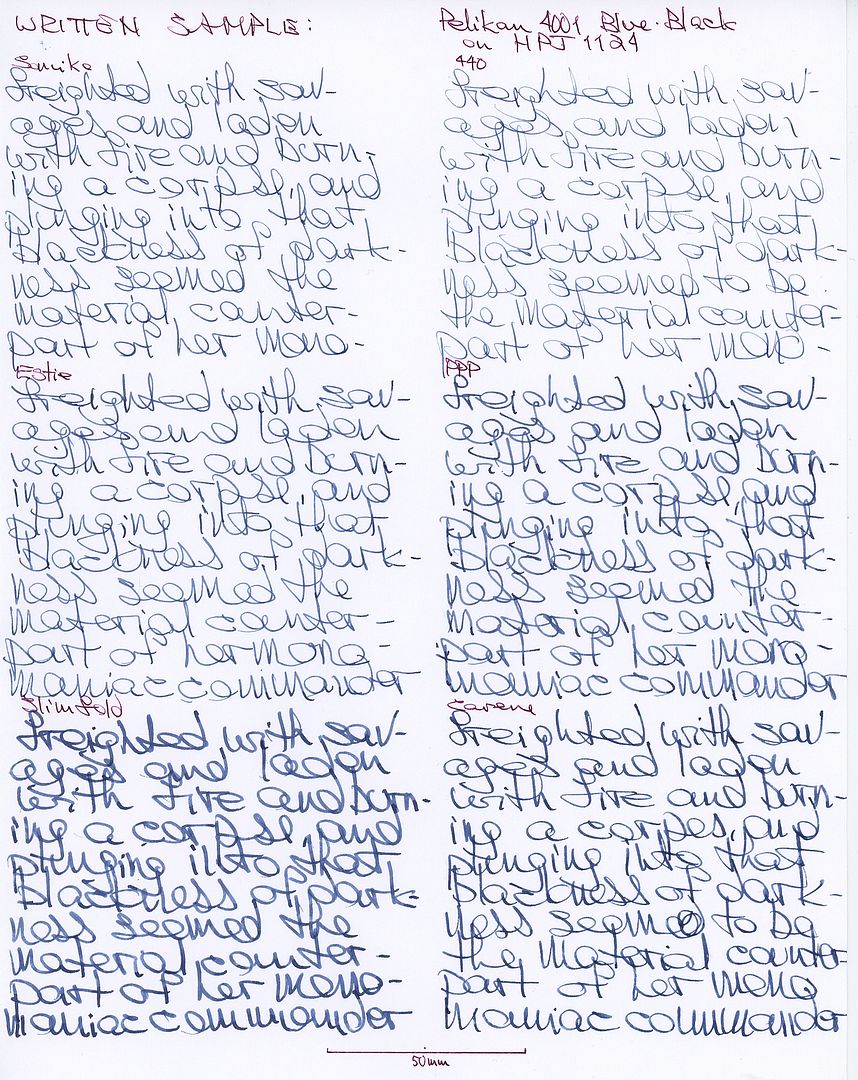 WRITTEN SAMPLE:
Pelikan 4001 Blue-Black
on HPJ 1124
Soniko
freighted with sav-
ages and laden
with fire and burn-
ing a corpse, and
plunging into that
blackness of dark-
ness seemed the
material counter-
part of her mono-
440
freighted with sav-
ages and laden
with fire and burn-
ing a corpse, and
plunging into that
blackness of dark-
ness seemed to be
the material counter-
part of her mono-
Estie
freighted with sav-
ages and laden
with fire and burn-
ing a corpse, and
plunging into that
blackness of dark-
ness seemed the
material counter-
part of her mono-
maniac commander
PPP
freighted with sav-
ages and laden
with fire and burn-
ing a corpse, and
plunging into that
blackness of dark-
ness seemed the
material counter-
part of her mono-
maniac commander
Slimfold
freighted with sav-
ages and laden
with fire and burn-
ing a corpse, and
plunging into that
blackness of dark-
ness seemed the
material counter-
part of her mono-
maniac commander
Carene
freighted with sav-
ages and laden
with fire and burn-
ing a corpes, and
plunging into that
blackness of dark-
ness seemed to be
the material counter-
part of her mono
maniac commander
50mm